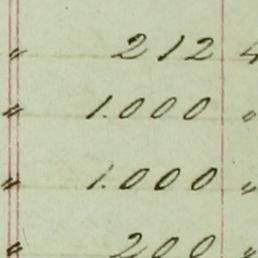 " 212 4
" 1.000 "
" 1.000 "
" 200 "